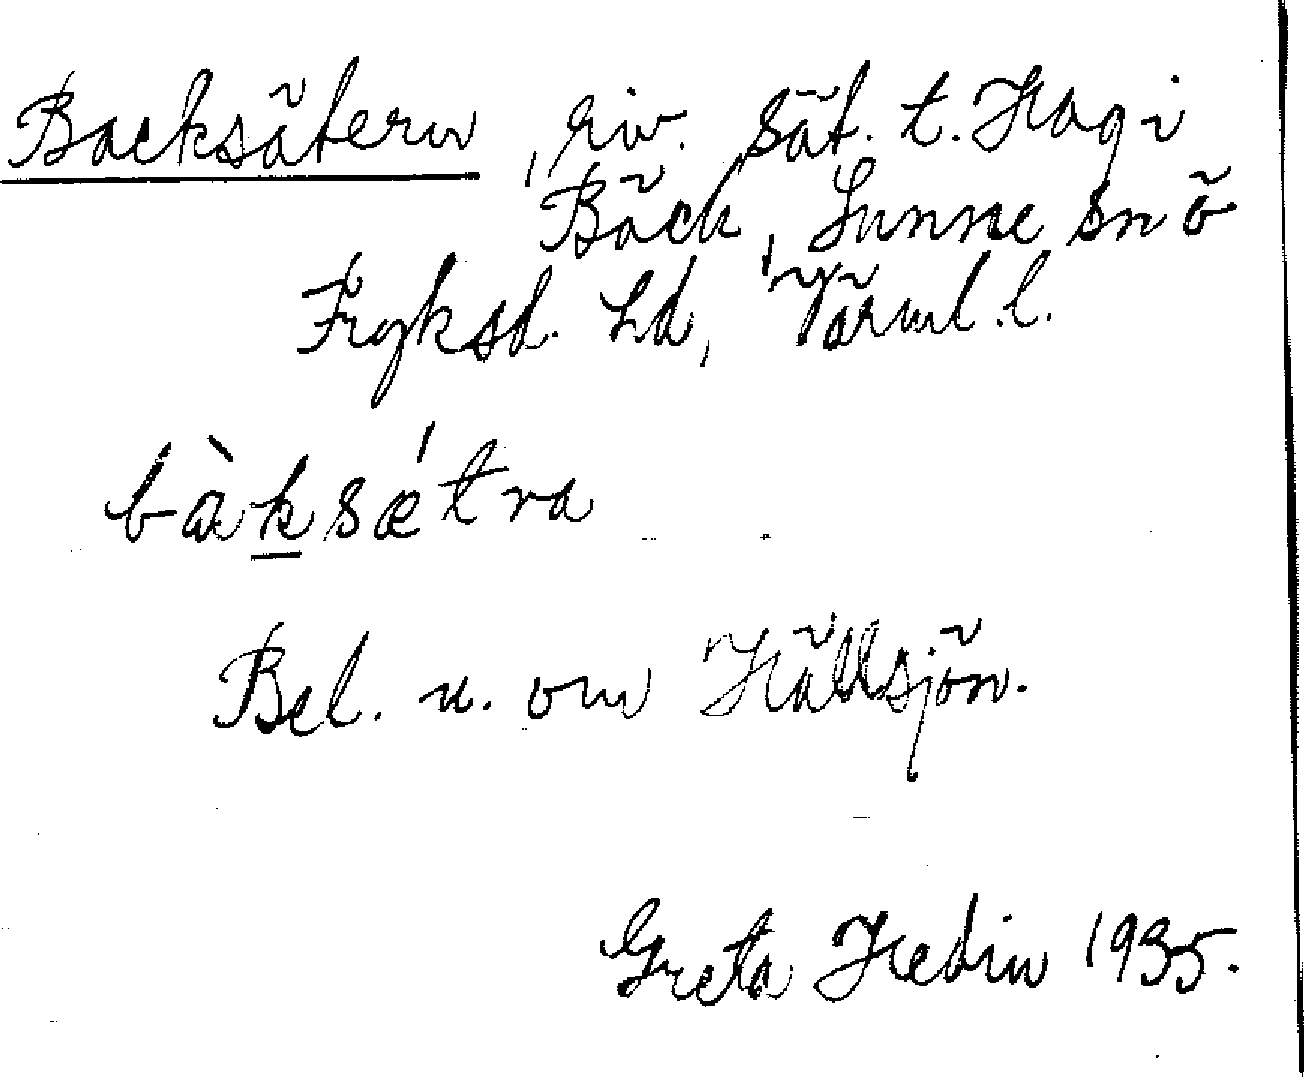 Backsätern, riv. sät. t. Hag i
Bäck, Sunne sn ö
Fryksd. hd, Värml. l.
bàksétra
Bel. u. om Hällsjön.
Greta Hedin 1935.